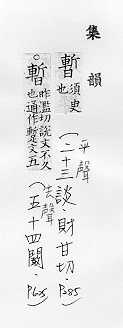 集韻
暫 須臾
也
平聲
(二十三)談．財甘切．P285
○暫 昨濫切說文不久
也通作蹔文五
去聲
(五十四)闞．P625